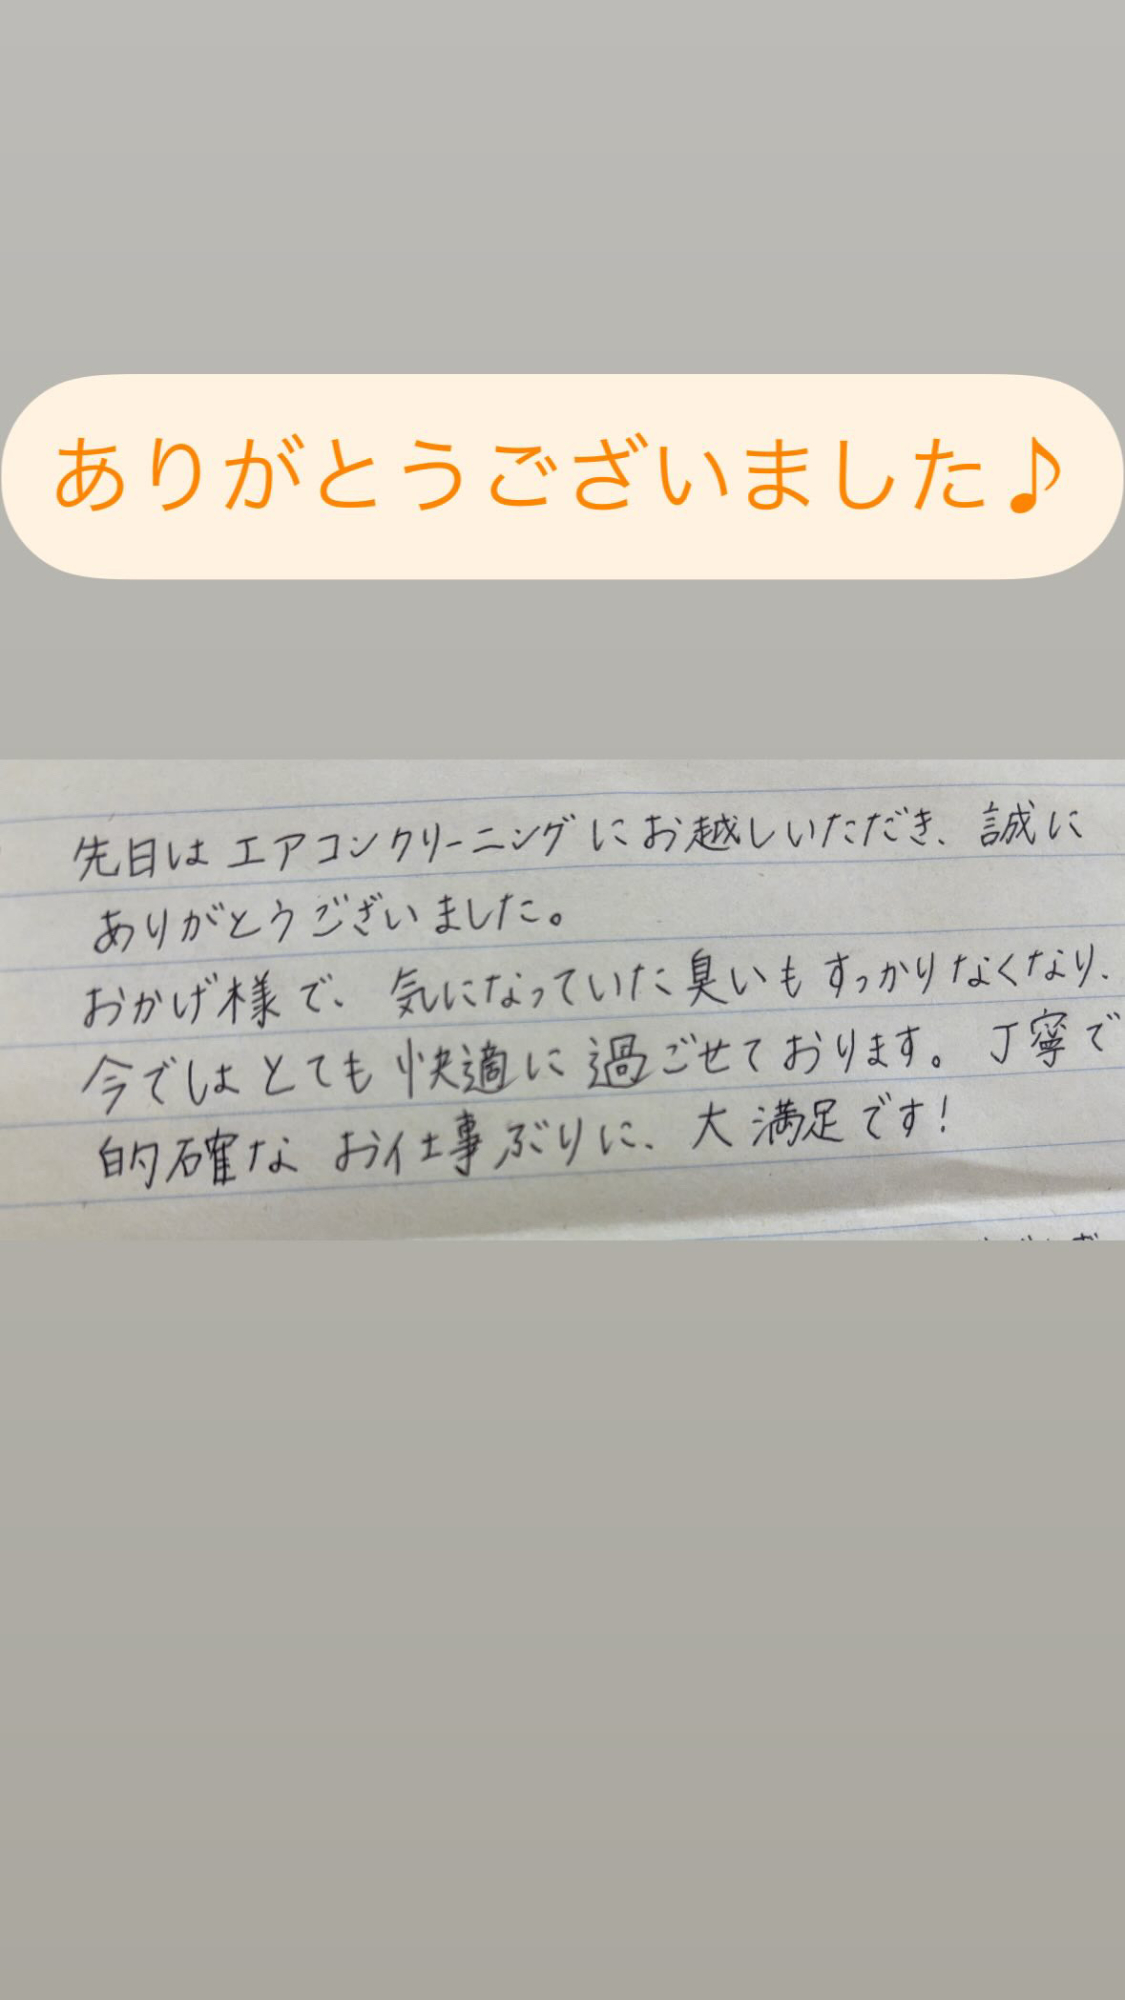 ありがとうございました♪
先日はエアコンクリーニングにお越しいただき、誠に
ありがとうございました。
おかげ様で、気になっていた臭いもすっかりなくなり、
今でしはとても快適に過ごせております。丁寧で
的確なお仕事ぶりに、大満足です!